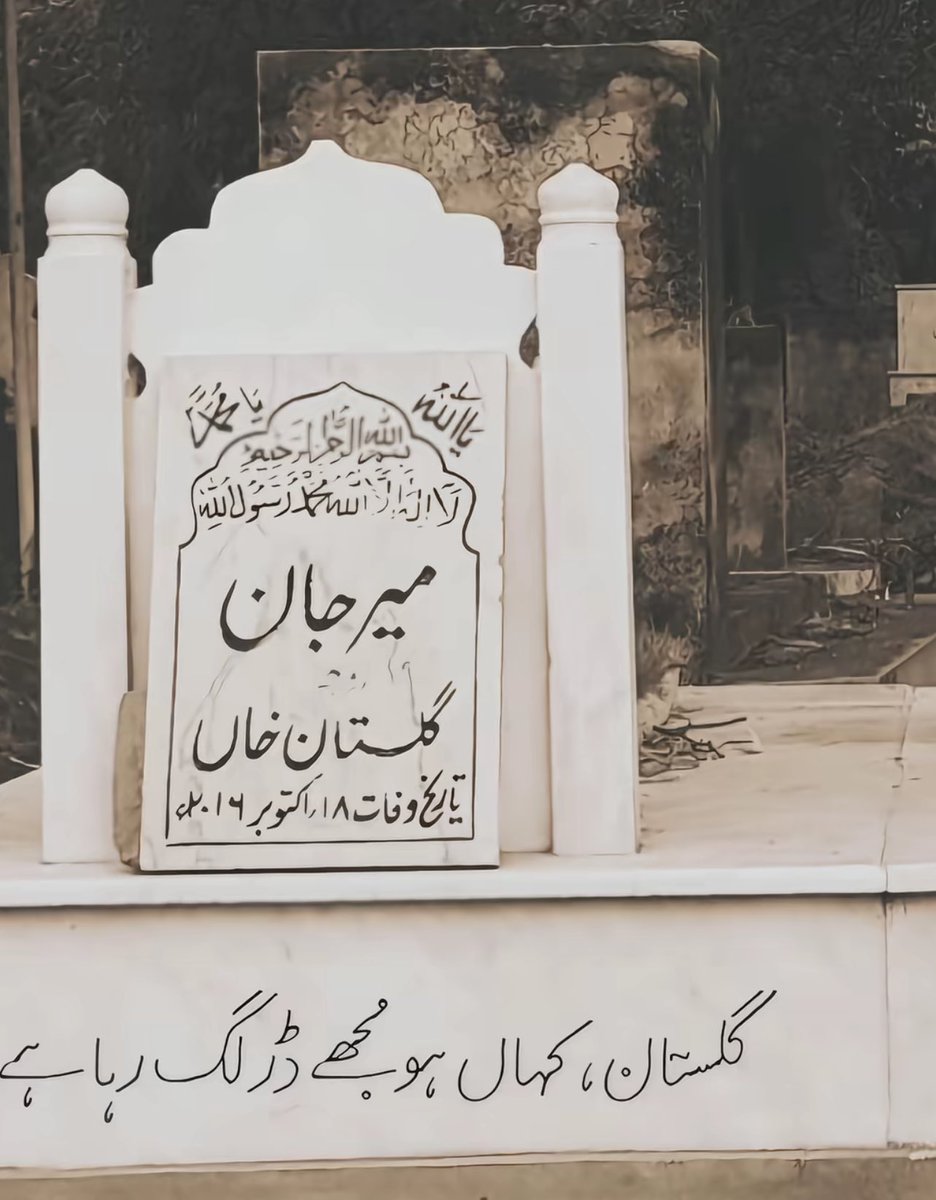 یا اللہ یا محمد
بسم اللہ الرحمن الرحیم
لَا اِلٰہَ اِلَّا اللہ مُحَمَّدٌ رَّسُولُ اللہِ
میر جان
گلستان خاں
تاریخ وفات ۱۸/ اکتوبر ۲۰۱۶ء
گلستان، کہاں ہو مُجھے ڈر لگ رہا ہے